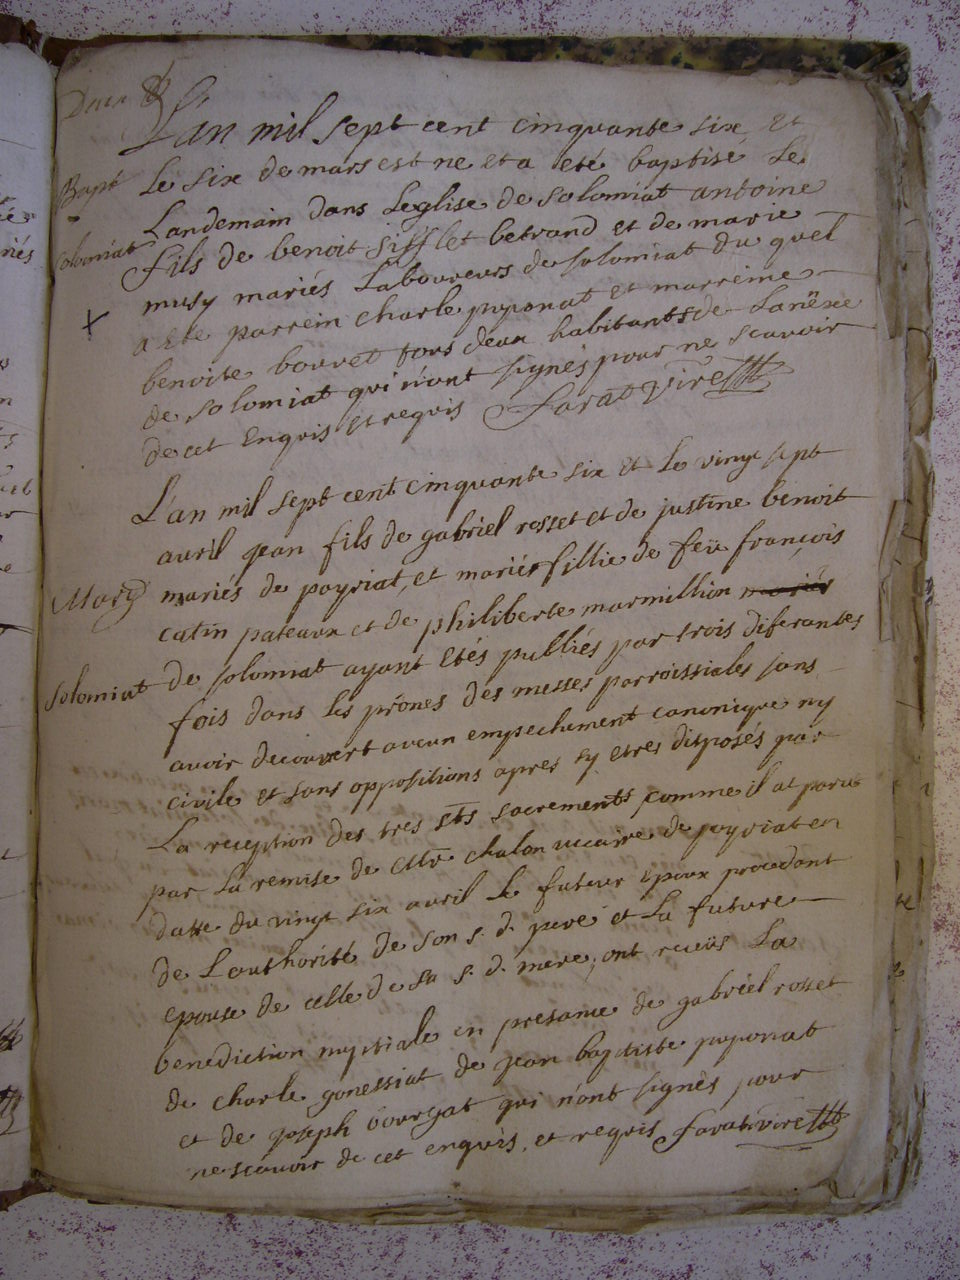 L'an mil sept cent cinquante six et
Bapt le six de mars est ne et a eté baptisé le
Landemain dans Leglise de solomiat antoine
solomiat fils de benoit sifflet betrand et de marie
musy mariés Laboureurs de solomiat du quel
a ete parrein charle puponat et marreine
benoite bouvet tous deux habitants de Lanëxe
de solomiat qui n'ont signés pour ne scavoir
de cet Enquis et requis favat vire
L'an mil sept cent cinquante six et le vingt sept
avril jean fils de gabriel rosset et de justine benoit
Marg mariés de poyriat, et mariés fillie de feü françois
catin pateaux et de philiberte marmillion mariés
solomiat de solomiat ayant Etés publiés par trois diferantes
fois dans les prônes des messes parroissiales sans
avoir decouvert aucun empechement canonique ny
civile et sans oppositions apres sy etres disposés par
La reception des tres sts sacrements comme il at paru
par La remise de Mre chalon vicaire de poyriat en
datte du vingt six avril le futeur Epoux procedant
de L'outhorité de son s. d. pere et La future
epouse de celle de sa s. d. mere, ont receüs La
benediction nuptiale en presance de gabriel rosset
de charle gonessiat de jean baptiste puponat
et de joseph bourgat qui n'ont signés pour
ne scavoir de cet enquis, et requis favat vire